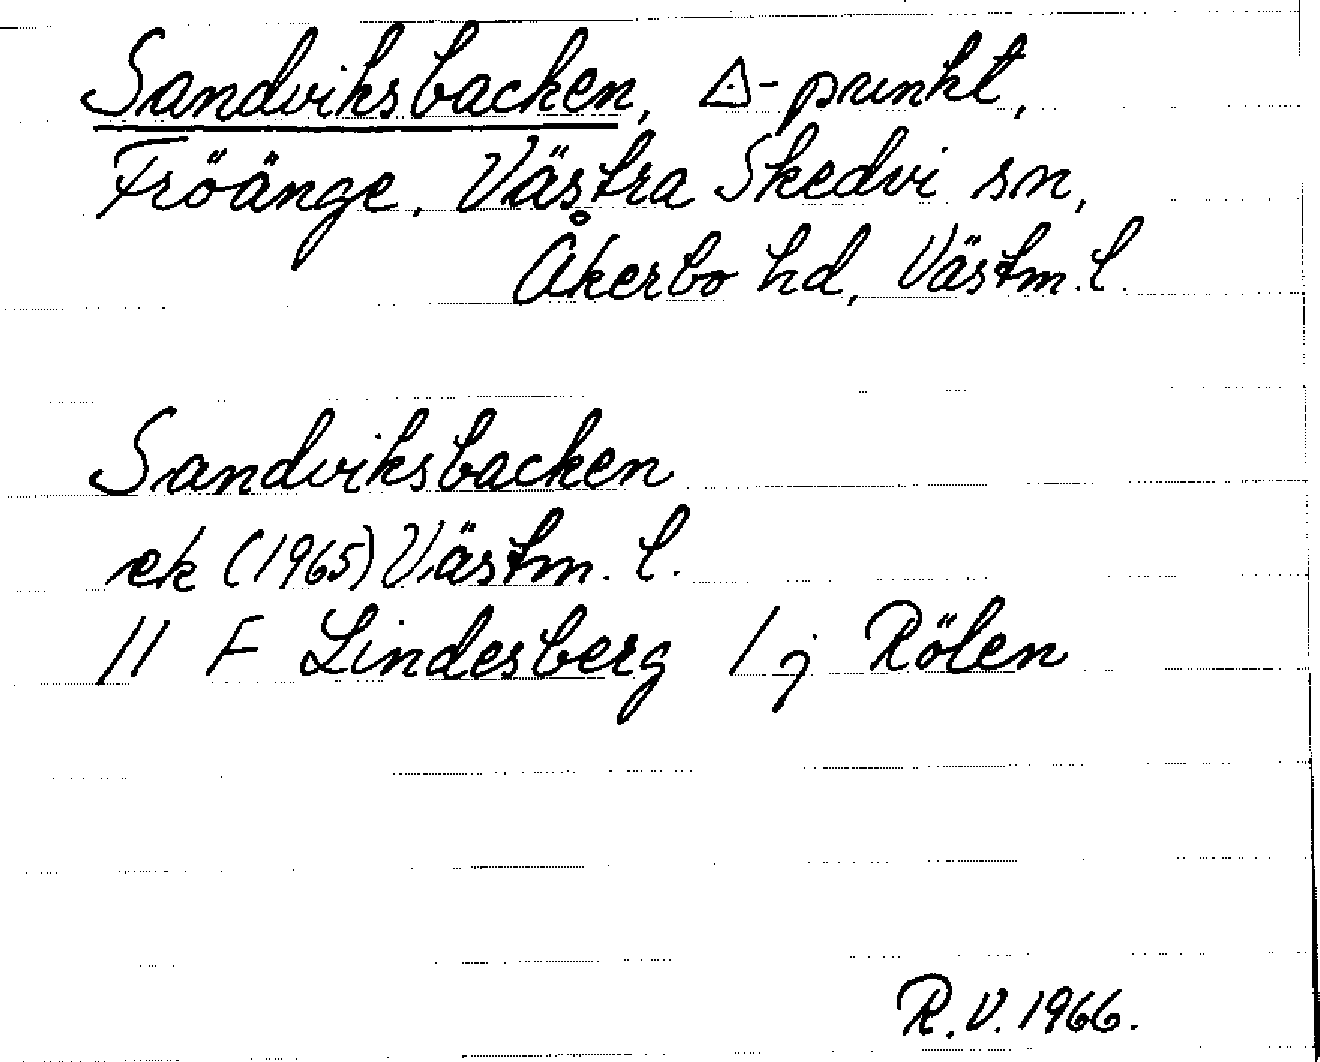 Sandviksbacken, △-punkt,
Fröänge, Västra Skedvi sn,
Åkerbo hd, Västm.l.
Sandviksbacken
ek (1965) Västm. l.
11 F Lindesberg 1 j Rölen
R.V. 1966.